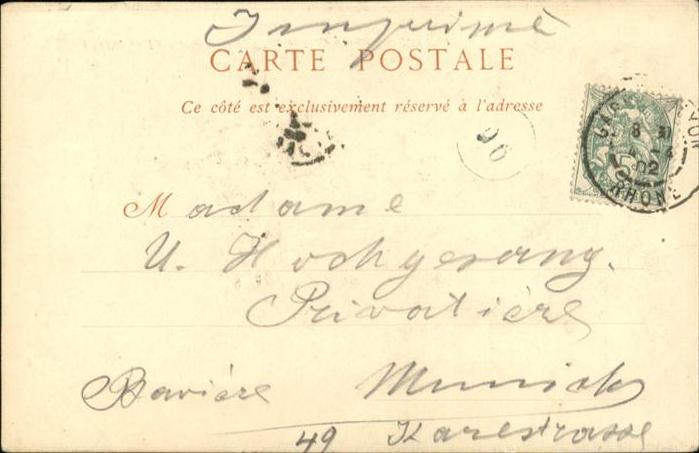 Imprimé
CARTE POSTALE
Ce côté est exclusivement réservé à l'adresse
96
8
02
RHÔNE
Madame
U. Hochgesang.
Privatière
Bavière Munich
49 Karlstrasse